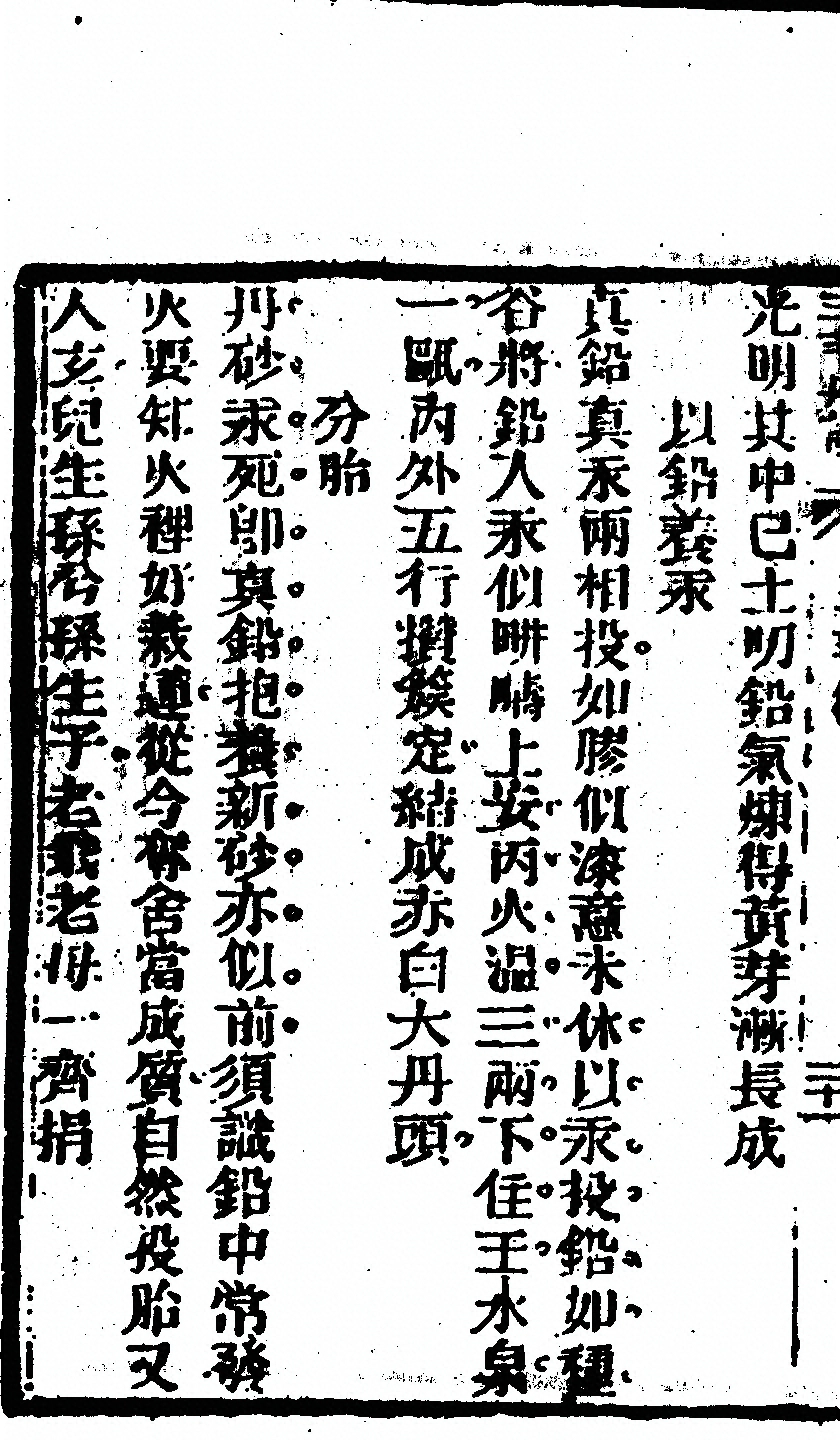 光明其中己土明鉛氣煉得黃芽漸長成
以鉛養汞
真鉛真汞兩相投如膠似漆意未休以汞投鉛如種
谷將鉛入汞似畊疇上安丙火溫三兩下住壬水泉
一甌內外五行攢簇定結成赤白大丹頭
分胎
丹砂汞死即真鉛抱養新砂亦似前須識鉛中常發
火要知火裡好栽蓮從今奪舍當成質自然投胎又
人玄兒生孫兮孫生子老我老母一齊捐